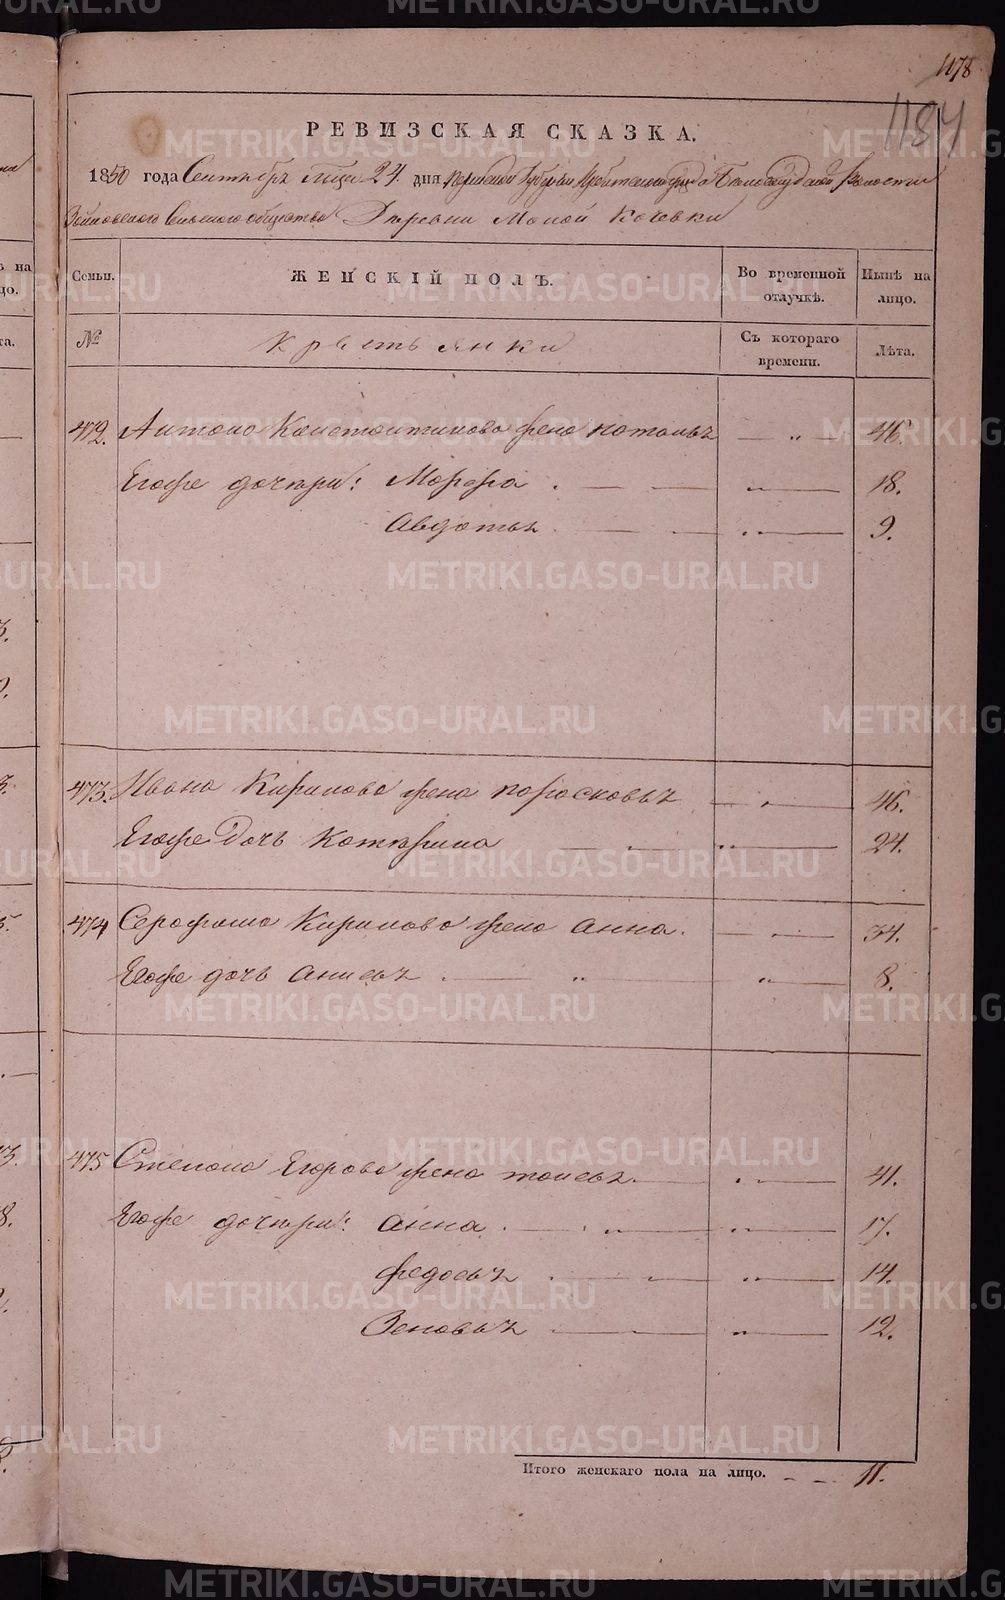 1178
1184
РЕВИЗСКАЯ СКАЗКА.
1850 года Сентября 24 дня Пермской Губернии Ирбитского уезда Белослудской волости
Зайковского Сельского общества Деревни Малой Кочевки
Семьи. ЖЕНСКІЙ ПОЛЪ. Во временной отлучкѣ. Нынѣ на лицо.
№ Крестьянки Съ котораго времени. Лѣта.
472. Антона Констонтинова жена Наталья — „ — 46.
Егоже дочери: Марфа . — — „ — 18.
Авдотья — — „ — 9.
473. Ивана Кирилова жена Порасковья — „ — 46.
Егоже Дочь Катерина — — „ — 24.
474 Серафима Кирилова жена Анна. — „ — 34.
Егоже дочь Анисья . — „ — „ — 8.
475 Степана Егорова жена Таисья — „ — 41.
Егоже дочери: Анна . — „ — „ — 17.
Федосья — — „ — 14.
Зеновья — „ — 12.
Итого женскаго пола на лицо. — — 11.
METRIKI.GASO-URAL.RU